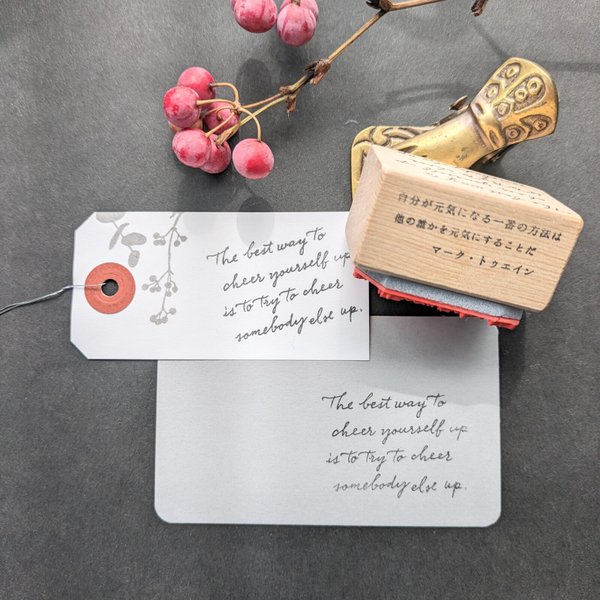 自分が元気になる一番の方法は
他の誰かを元気にすることだ
マーク・トゥエイン
The best way to
cheer yourself up
is to try to cheer
somebody else up.
The best way to
cheer yourself up
is to try to cheer
somebody else up.